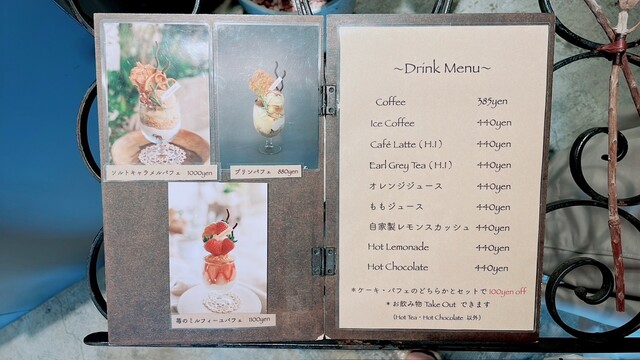 ソルトキャラメルパフェ 1000yen
プリンパフェ 880yen
苺のミルフィーユパフェ 1100yen
~Drink Menu~
Coffee 385yen
Ice Coffee 440yen
Café Latte (H.I) 440yen
Earl Grey Tea (H.I) 440yen
オレンジジュース 440yen
ももジュース 440yen
自家製レモンスカッシュ 440yen
Hot Lemonade 440yen
Hot Chocolate 440yen
*ケーキ・パフェのどちらかとセットで 100yen off
*お飲み物 Take Out できます
(Hot Tea・Hot Chocolate 以外)